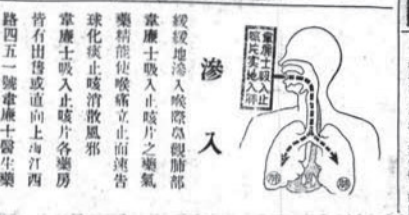 韋廉士吸入止
咳片實地入肺
肺
肺
滲入
緩緩地滲入喉際 肺部
韋廉士吸入止咳片之藥氣
藥精能使喉痛立止而速告
化痰止咳消散風邪
韋廉士吸入止咳片各藥房
皆有出售或直向上海江西
路四五一號韋廉士醫生藥